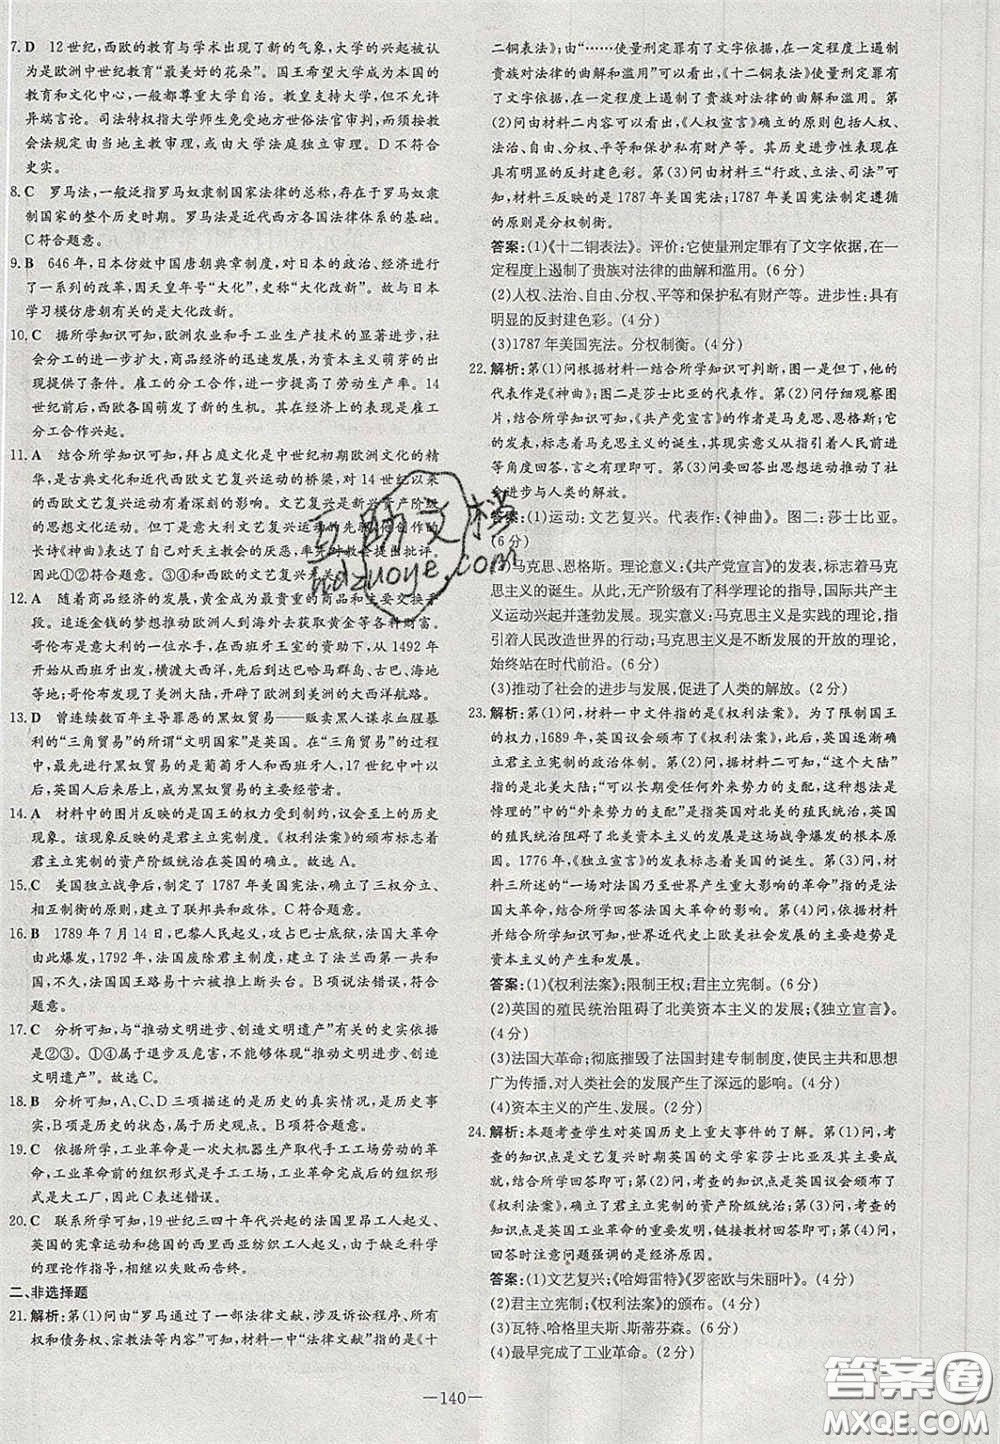 7. D　12 世纪,西欧的教育与学术出现了新的气象,大学的兴起被认
为是欧洲中世纪教育“最美好的花朵”。国王希望大学成为本国的
教育和文化中心,一般都尊重大学自治。教皇支持大学,但不允许
异端言论。司法特权指大学师生免受地方世俗法官审判,而按照教
会法规定由当地主教审理,或由大学法庭独立审理。D 不符合
史实。
8. C　罗马法,一般泛指罗马奴隶制国家法律的总称,存在于罗马奴隶
制国家的整个历史时期。罗马法是近代西方各国法律体系的基础。
C 符合题意。
9. B　646 年,日本仿效中国唐朝典章制度,对日本的政治、经济进行
了一系列的改革,因天皇年号“大化”,史称“大化改新”。故与日本
学习模仿唐朝有关的是大化改新。
10. C　据所学知识可知,欧洲农业和手工业生产技术的显著进步,社
会分工的进一步扩大,商品经济的迅速发展,为资本主义萌芽的出现
提供了条件。雇工的分工合作,进一步提高了劳动生产率。14
世纪前后,西欧各国萌发了新的生机。其在经济上的表现是雇工
分工合作兴起。
11. A　结合所学知识可知,拜占庭文化是中世纪初期欧洲文化的精
华,是古典文化和近代西欧文艺复兴运动的桥梁,对 14 世纪以来
的西欧文艺复兴运动有着深刻的影响。文艺复兴是新兴资产阶级
的思想文化运动。意大利文艺复兴运动的先驱但丁创作的
长诗《神曲》表达了自己对天主教会的厌恶,率先对教会提出批评。
因此①②符合题意。③④和西欧的文艺复兴
12. A　随着商品经济的发展,黄金成为最贵重的商品和主要交换手
段。追逐金钱的梦想推动欧洲人到海外去获取黄金等各种财富。
哥伦布是意大利的一位水手,在西班牙王室的资助下,从 1492 年
开始,横渡大西洋,先后到达今天的巴哈马群岛、古巴、海地
等地;哥伦布到达了美洲大陆,开辟了欧洲到美洲的大西洋航路。
13. D　曾连续数百年主导罪恶的黑奴贸易——贩卖黑人谋求血腥暴
利的“三角贸易”的所谓“文明国家”是英国。在“三角贸易”的过程
中,最早进行黑奴贸易的是葡萄牙人和西班牙人,17 世纪中叶以
后,英国人后来居上,成为黑奴贸易的主要经营者。
14. A　材料中的图片反映的是国王的权力受到制约,议会至上的历史
现象。该现象反映的是君主立宪制度。《权利法案》的颁布标志着
君主立宪制的资产阶级统治在英国的确立。故选 A。
15. C　美国独立战争后,制定了 1787 年美国宪法,确立了三权分立、
相互制衡的原则,建立了联邦共和政体。C 符合题意。
16. B　1789 年 7 月 14 日,巴黎人民起义,攻占巴士底狱,法国大革命
由此爆发,1792 年,法国废除君主制度,建立了法兰西第一共和
国,不久,法国国王路易十六被推上断头台。B 项说法错误,符合
题意。
17. C　分析可知,与“推动文明进步、创造文明遗产”有关的史实依据
是②③。①④属于退步及危害,不能够体现“推动文明进步、创造
文明遗产”。故选 C。
18. B　分析可知,A、C、D 三项描述的是历史的真实情况,是历史事
实,B 项是历史的状态,属于历史观点。B 项符合题意。
19. C　依据所学,工业革命是一次大机器生产取代手工工场劳动的革
命,工业革命前的组织形式是手工工场,工业革命后的组织形
式是大工厂,因此 C 表述错误。
20. C　联系所学可知,19 世纪三四十年代兴起的法国里昂工人起义、
英国的宪章运动和德国的西里西亚纺织工人起义,由于缺乏科学
的理论作指导,相继以失败而告终。
二、非选择题
21. 解析:第(1)问由“罗马通过了一部法律文献,涉及诉讼程序、所有
权和债务权、宗教法等内容”可知,材料一中“法律文献”指的是《十
二铜表法》;由“……使量刑定罪有了文字依据,在一定程度上遏制
贵族对法律的曲解和滥用”可以看出,《十二铜表法》使量刑定罪有
了文字依据,在一定程度上遏制了贵族对法律的曲解和滥用。第
(2)问由材料二内容可以看出,《人权宣言》确立的原则包括人权、
法治、自由、分权、平等和保护私有财产等。其历史进步性表现在
具有明显的反封建色彩。第(3)问由材料三“行政、立法、司法”可
知,材料三反映的是 1787 年美国宪法;1787 年美国宪法制定遵循
的原则是分权制衡。
答案:(1)《十二铜表法》。评价:它使量刑定罪有了文字依据,在一
定程度上遏制了贵族对法律的曲解和滥用。(6 分)
(2)人权、法治、自由、分权、平等和保护私有财产等。进步性:具有
明显的反封建色彩。(4 分)
(3)1787 年美国宪法。分权制衡。(4 分)
22. 解析:第(1)问根据材料一结合所学知识可判断,图一是但丁,他的
代表作是《神曲》;图二是莎士比亚的代表作。第(2)问仔细观察图
片,结合所学知识可知,《共产党宣言》的作者是马克思、恩格斯;它
的发表,标志着马克思主义的诞生,其现实意义从指引着人民前进
等角度回答,言之有理即可。第(3)问要回答出推动了社
会进步与人类的解放。
答案:(1)运动:文艺复兴。代表作:《神曲》。图二:莎士比亚。
(6 分)
(2)马克思、恩格斯。理论意义:《共产党宣言》的发表,标志着马克
思主义的诞生。从此,无产阶级有了科学理论的指导,国际共产主
义运动兴起并蓬勃发展。现实意义:马克思主义是实践的理论,指
引着人民改造世界的行动;马克思主义是不断发展的开放的理论,
始终站在时代前沿。(6 分)
(3)推动了社会的进步与发展,促进了人类的解放。(2 分)
23. 解析:第(1)问,材料一中文件指的是《权利法案》。为了限制国王
的权力,1689 年,英国议会颁布了《权利法案》,此后,英国逐渐确
立君主立宪制的政治体制。第(2)问,据材料二可知,“这个大陆”
指的是北美大陆;“可以长期受任何外来势力的支配,这种想法是
悖理的”中的“外来势力的支配”指的是英国对北美的殖民统治,英国
的殖民统治阻碍了北美资本主义的发展是这场战争爆发的根本原
因。1776 年,《独立宣言》的发表标志着美国的诞生。第(3)问,材
料三所述的“一场对法国乃至世界产生重大影响的革命”指的是法
国大革命,结合所学回答法国大革命的影响。第(4)问,依据材料并
结合所学知识可知,世界近代史上欧美社会发展的主要趋势是
资本主义的产生和发展。
答案:(1)《权利法案》;限制王权;君主立宪制。(6 分)
(2)英国的殖民统治阻碍了北美资本主义的发展;《独立宣言》。
(4 分)
(3)法国大革命;彻底摧毁了法国封建专制制度,使民主共和思想
广为传播,对人类社会的发展产生了深远的影响。(4 分)
(4)资本主义的产生、发展。(2 分)
24. 解析:本题考查学生对英国历史上重大事件的了解。第(1)问,考
查的知识点是文艺复兴时期英国的文学家莎士比亚及其作品,链
接所学回答即可;第(2)问,考查的知识点是英国资产阶级革命,
《权利法案》,确立了君主立宪制的资产阶级统治;第(3)问,考查的
知识点是英国工业革命的重要发明,链接教材回答即可;第(4)问,
回答时注意问题强调的是经济原因。
答案:(1)文艺复兴;《哈姆雷特》《罗密欧与朱丽叶》。(4 分)
(2)君主立宪制;《权利法案》的颁布。(4 分)
(3)瓦特、哈格里夫斯、斯蒂芬森。(6 分)
(4)最早完成了工业革命。(2 分)
—140—
互助文档
hdzuoye.com
答案圈
MXQE.COM